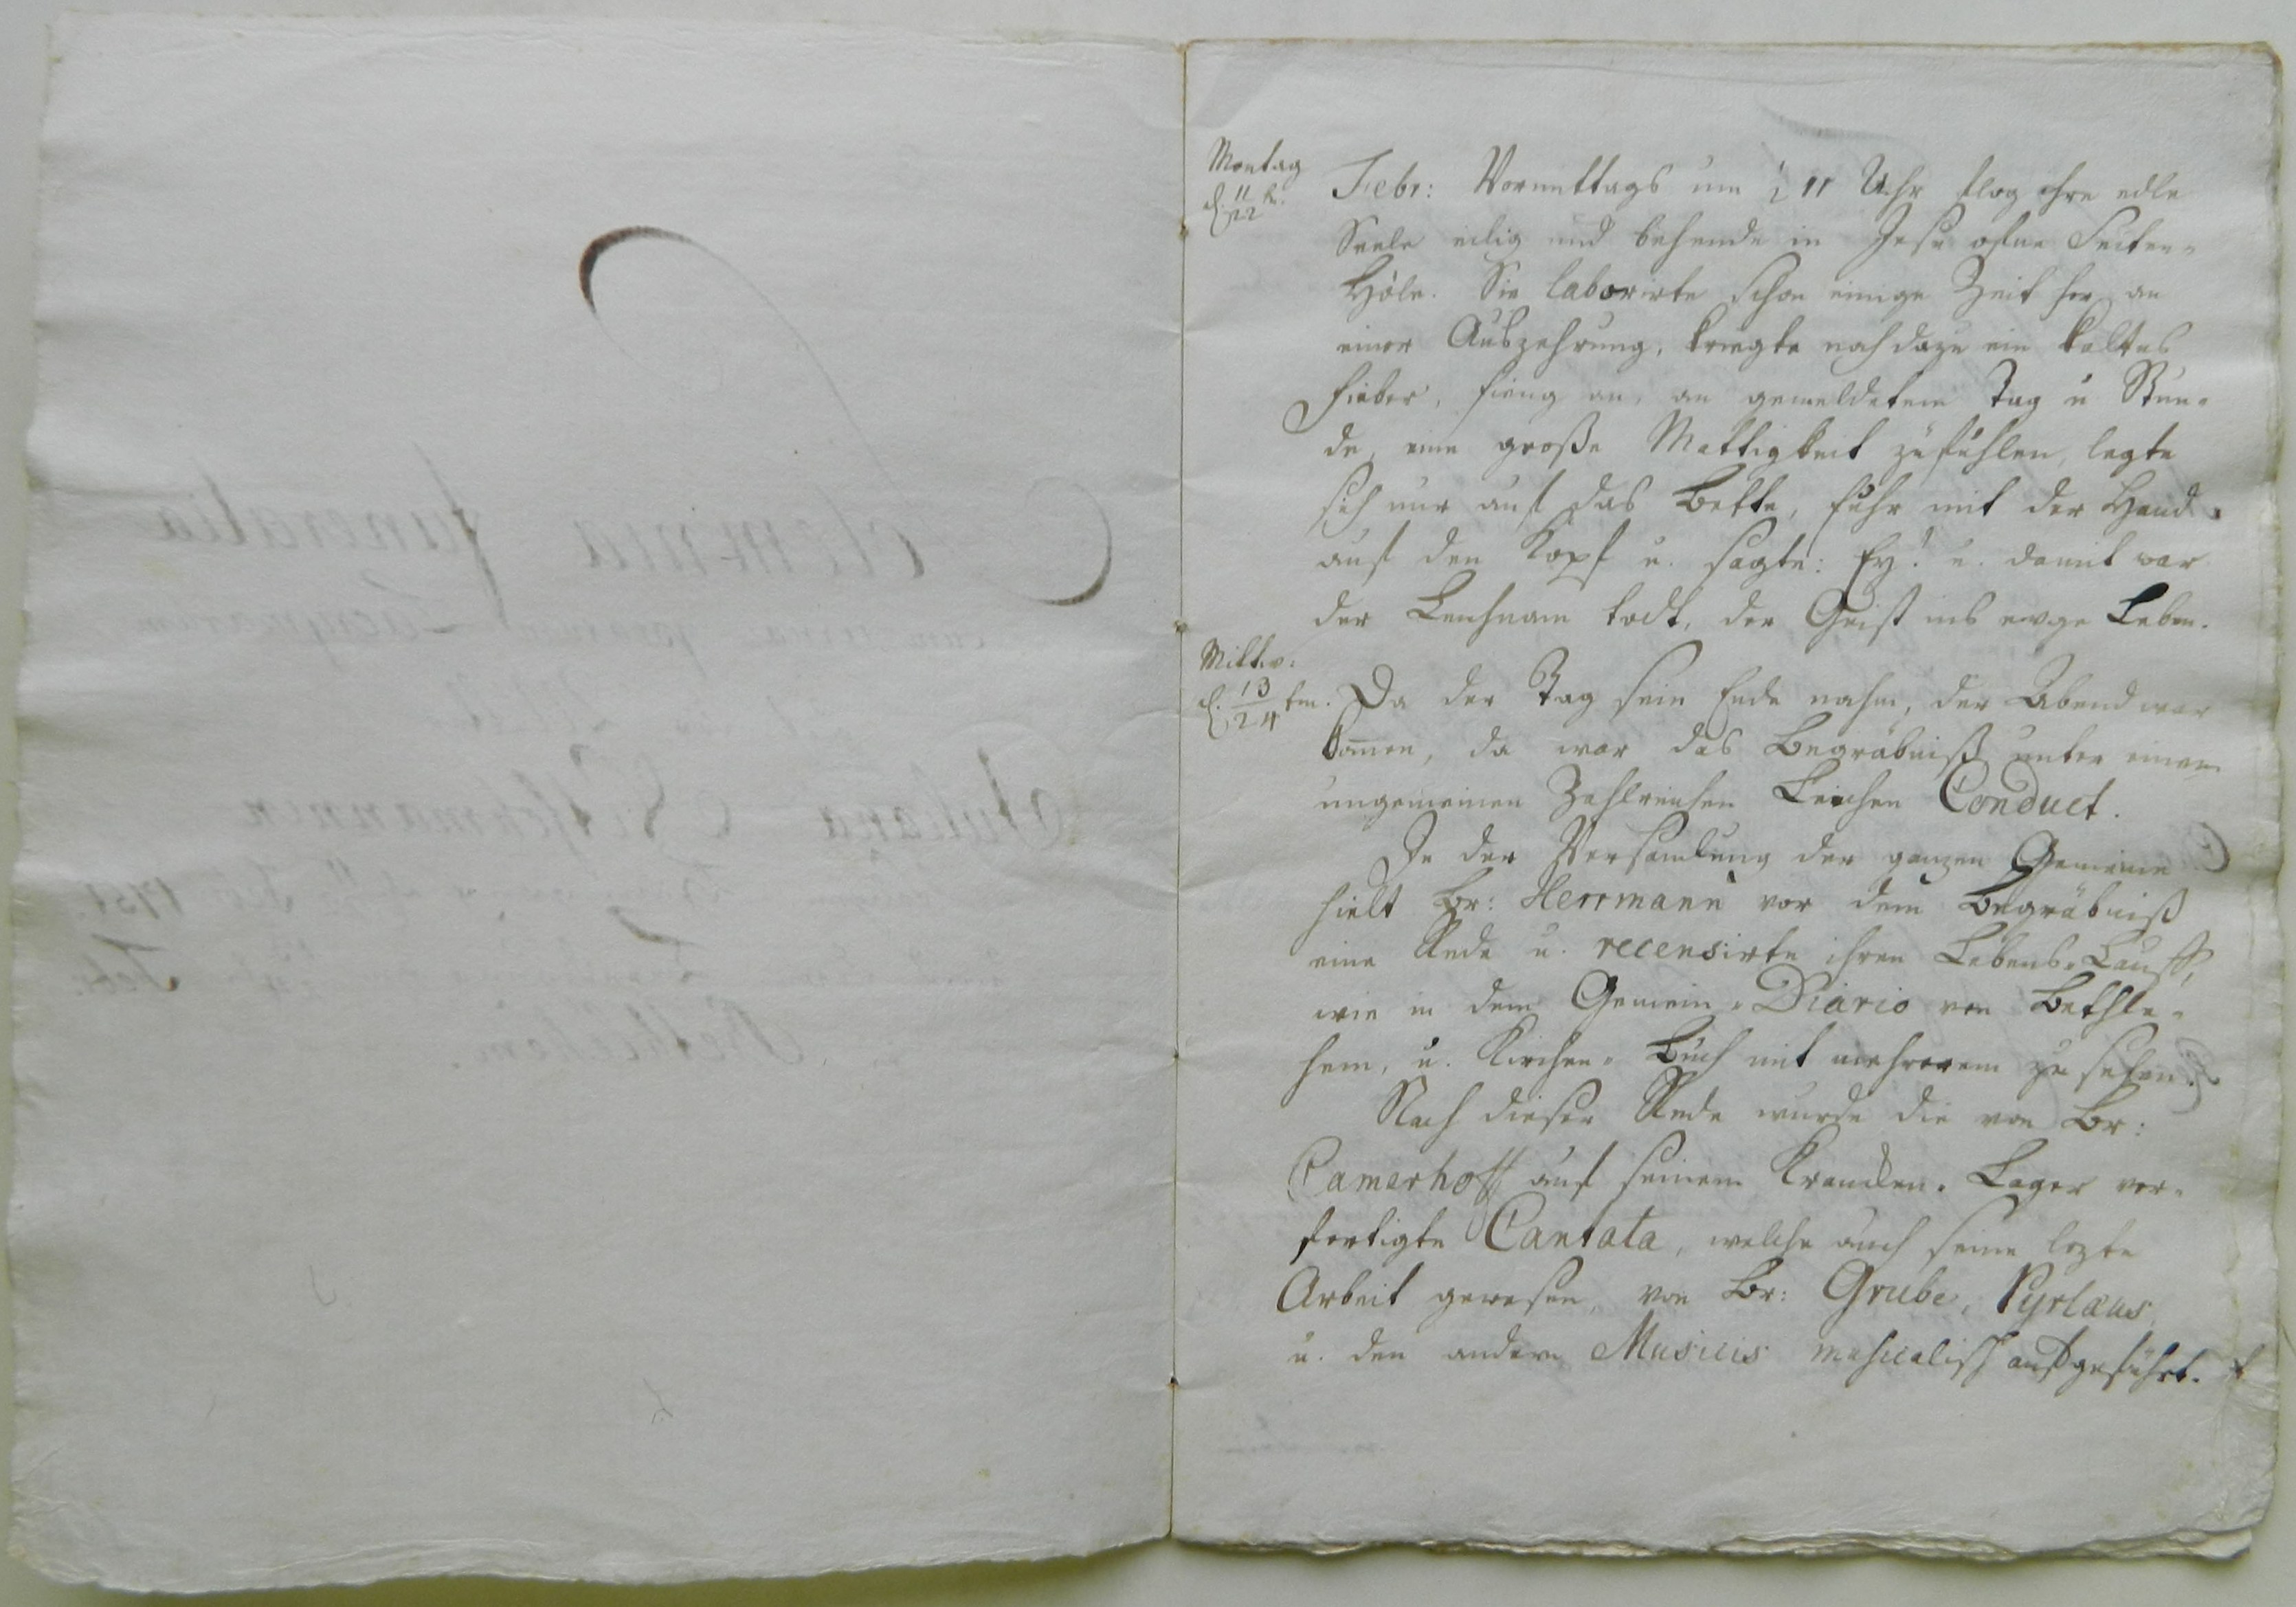 Montag
d. 11/22 t.
Febr: Vormittags um ½ 11 Uhr flog ihre edle
Seele eilig und behende in Jesu ofne Seiten-
Höle. Sie laborirte schon einige Zeit her an
einer Auszehrung, kriegte noch dazu ein kaltes
Fieber, fieng an, an gemeldetem Tag u Stun-
de, eine große Mattigkeit zu fühlen, legte
sich nur auf das Bette, fuhr mit der Hand
auf den Kopf u. sagte: Ey! u. damit war
der Leichnam todt, der Geist ins ewge Leben.
Mittw:
d. 13/24 ten.
Da der Tag sein Ende nahm, der Abend war
kom̄en, da war das Begräbniß unter einem
ungemeinen Zahlreichen Leichen Conduct.
In der Versamlung der ganzen Gemeine
hielt Br: Herrmann vor dem Begräbniß
eine Rede u. recensirte ihren Lebens-Lauff,
wie in dem Gemein-Diario von Bethle-
hem, u. Kirchen-Buch mit mehrerem zu sehen.
Nach dieser Rede wurde die von Br:
Camerhoff auf seinem Krancken-Lager ver-
fertigte Cantata, welche auch seine lezte
Arbeit gewesen, von Br: Grube, Pyrlæus
u. den andern Musicis musicalisch aufgeführt.